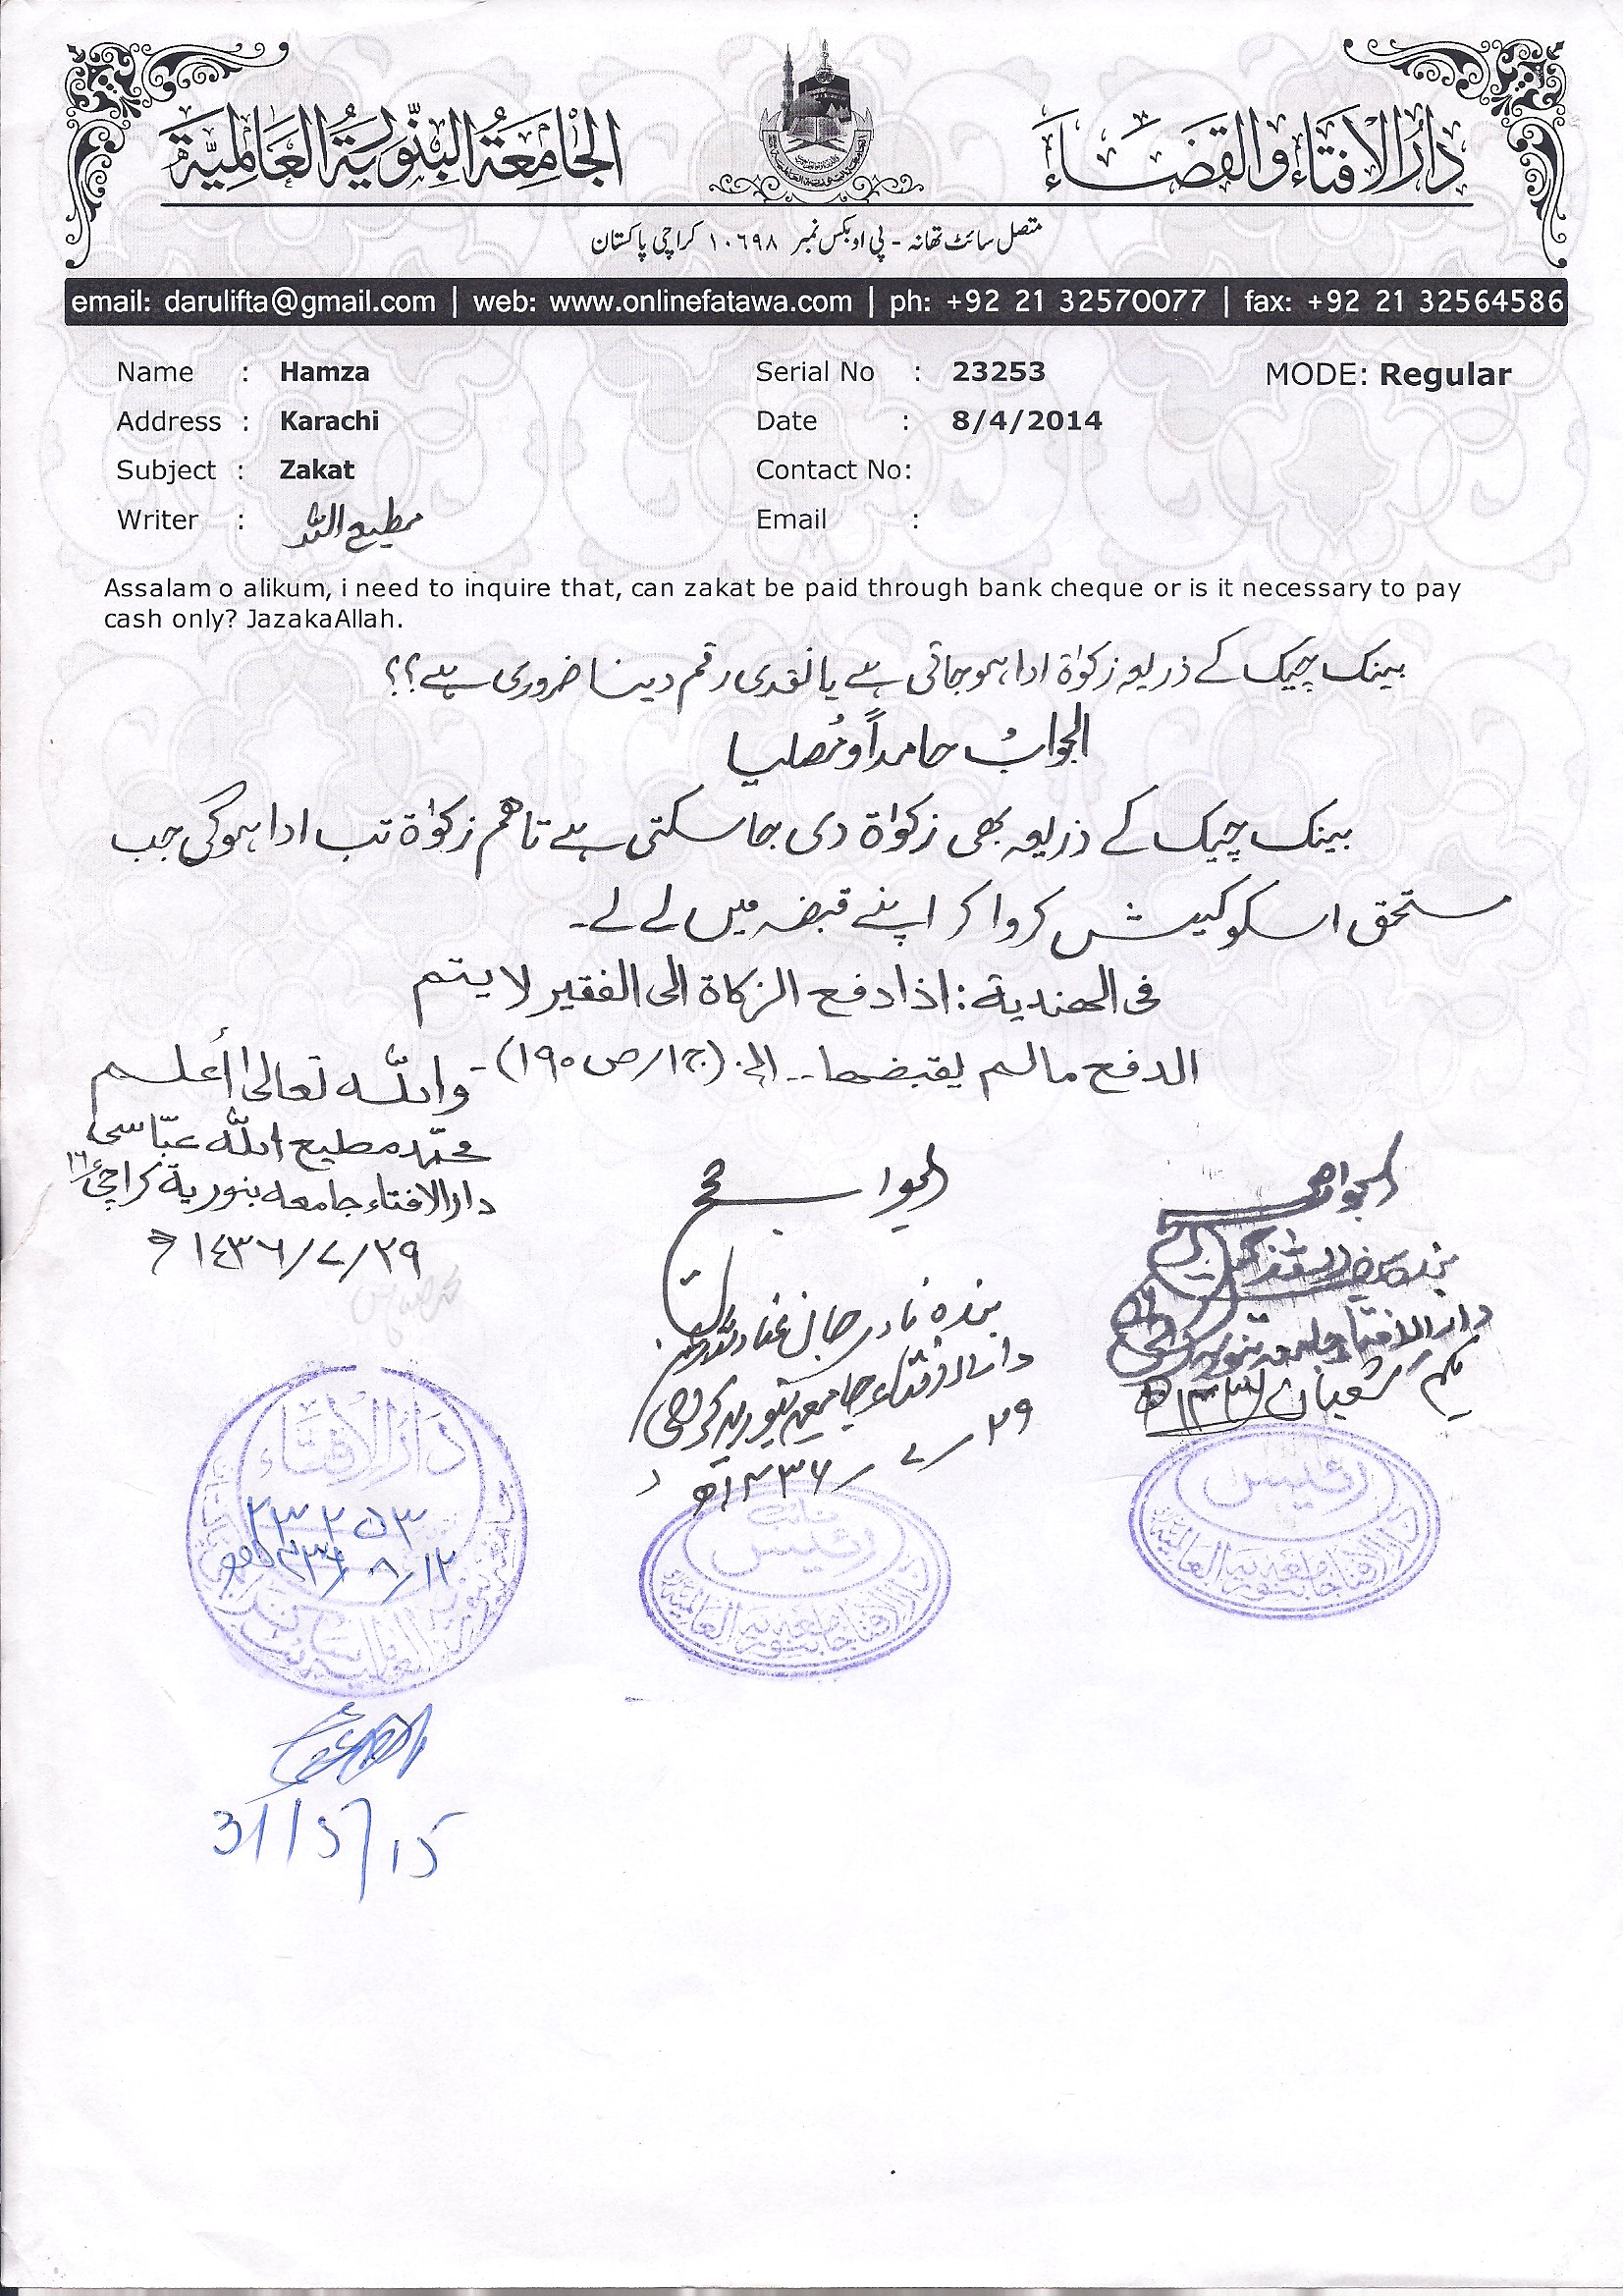 دَارُ الْاِفتَاء وَالقَضَاء
الجَامِعَةُ البِنّورِيَةُ العَالَمِيَّة
متصل سائٹ تھانہ - پی او بکس نمبر ۱۰۶۹۸ کراچی پاکستان
email: darulifta@gmail.com | web: www.onlinefatawa.com | ph: +92 21 32570077 | fax: +92 21 32564586
Name : Hamza Serial No : 23253 MODE: Regular
Address : Karachi Date : 8/4/2014
Subject : Zakat Contact No:
Writer : مطیع اللہ Email :
Assalam o alikum, i need to inquire that, can zakat be paid through bank cheque or is it necessary to pay
cash only? JazakaAllah.
بینک چیک کے ذریعہ زکوٰۃ ادا ہو جاتی ہے یا نقدی رقم دینا ضروری ہے؟؟
الجوابُ حامداً ومُصلیا
بینک چیک کے ذریعہ بھی زکوٰۃ دی جاسکتی ہے تاھم زکوٰۃ تب ادا ہوگی جب
مستحق اسکو کیش کروا کر اپنے قبضہ میں لے لے۔
فی الھندیة: اذا دفع الزکاة الی الفقیر لا یتم
الدفع مالم یقبضھا.. الخ (ج۱/ص۱۹۰)-
واللہ تعالیٰ أعلم
محمد مطیع اللہ عبّاسی
دارالافتاء جامعہ بنوریة کراچی ۱۶
۲۹/۷/۱۴۳۶ھ
الجواب صحیح
بندہ نادر جان
دارالافتاء جامعہ بنوریہ کراچی
۲۹/۷/۱۴۳۶ھ
الجواب صحیح
دارالافتاء جامعہ بنوریہ
یکم شعبان
دَارُ الاِفتَاء
۲۳۲۵۳
نائب
رئیس
دارالافتاء جامعہ بنوریہ العالمیة
رئیس
دارالافتاء جامعہ بنوریہ العالمیة
31/5/15